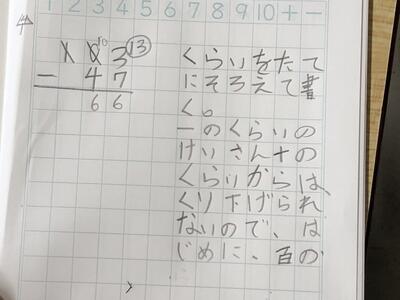 1 2 3 4 5 6 7 8 9 10 + −
10 13
1 0 3
− 4 7
6 6
くらいをたて
にそろえて書
く。
一のくらいの
けいさん十の
くらいからは
くり下げられ
ないので、は
じめに、百の